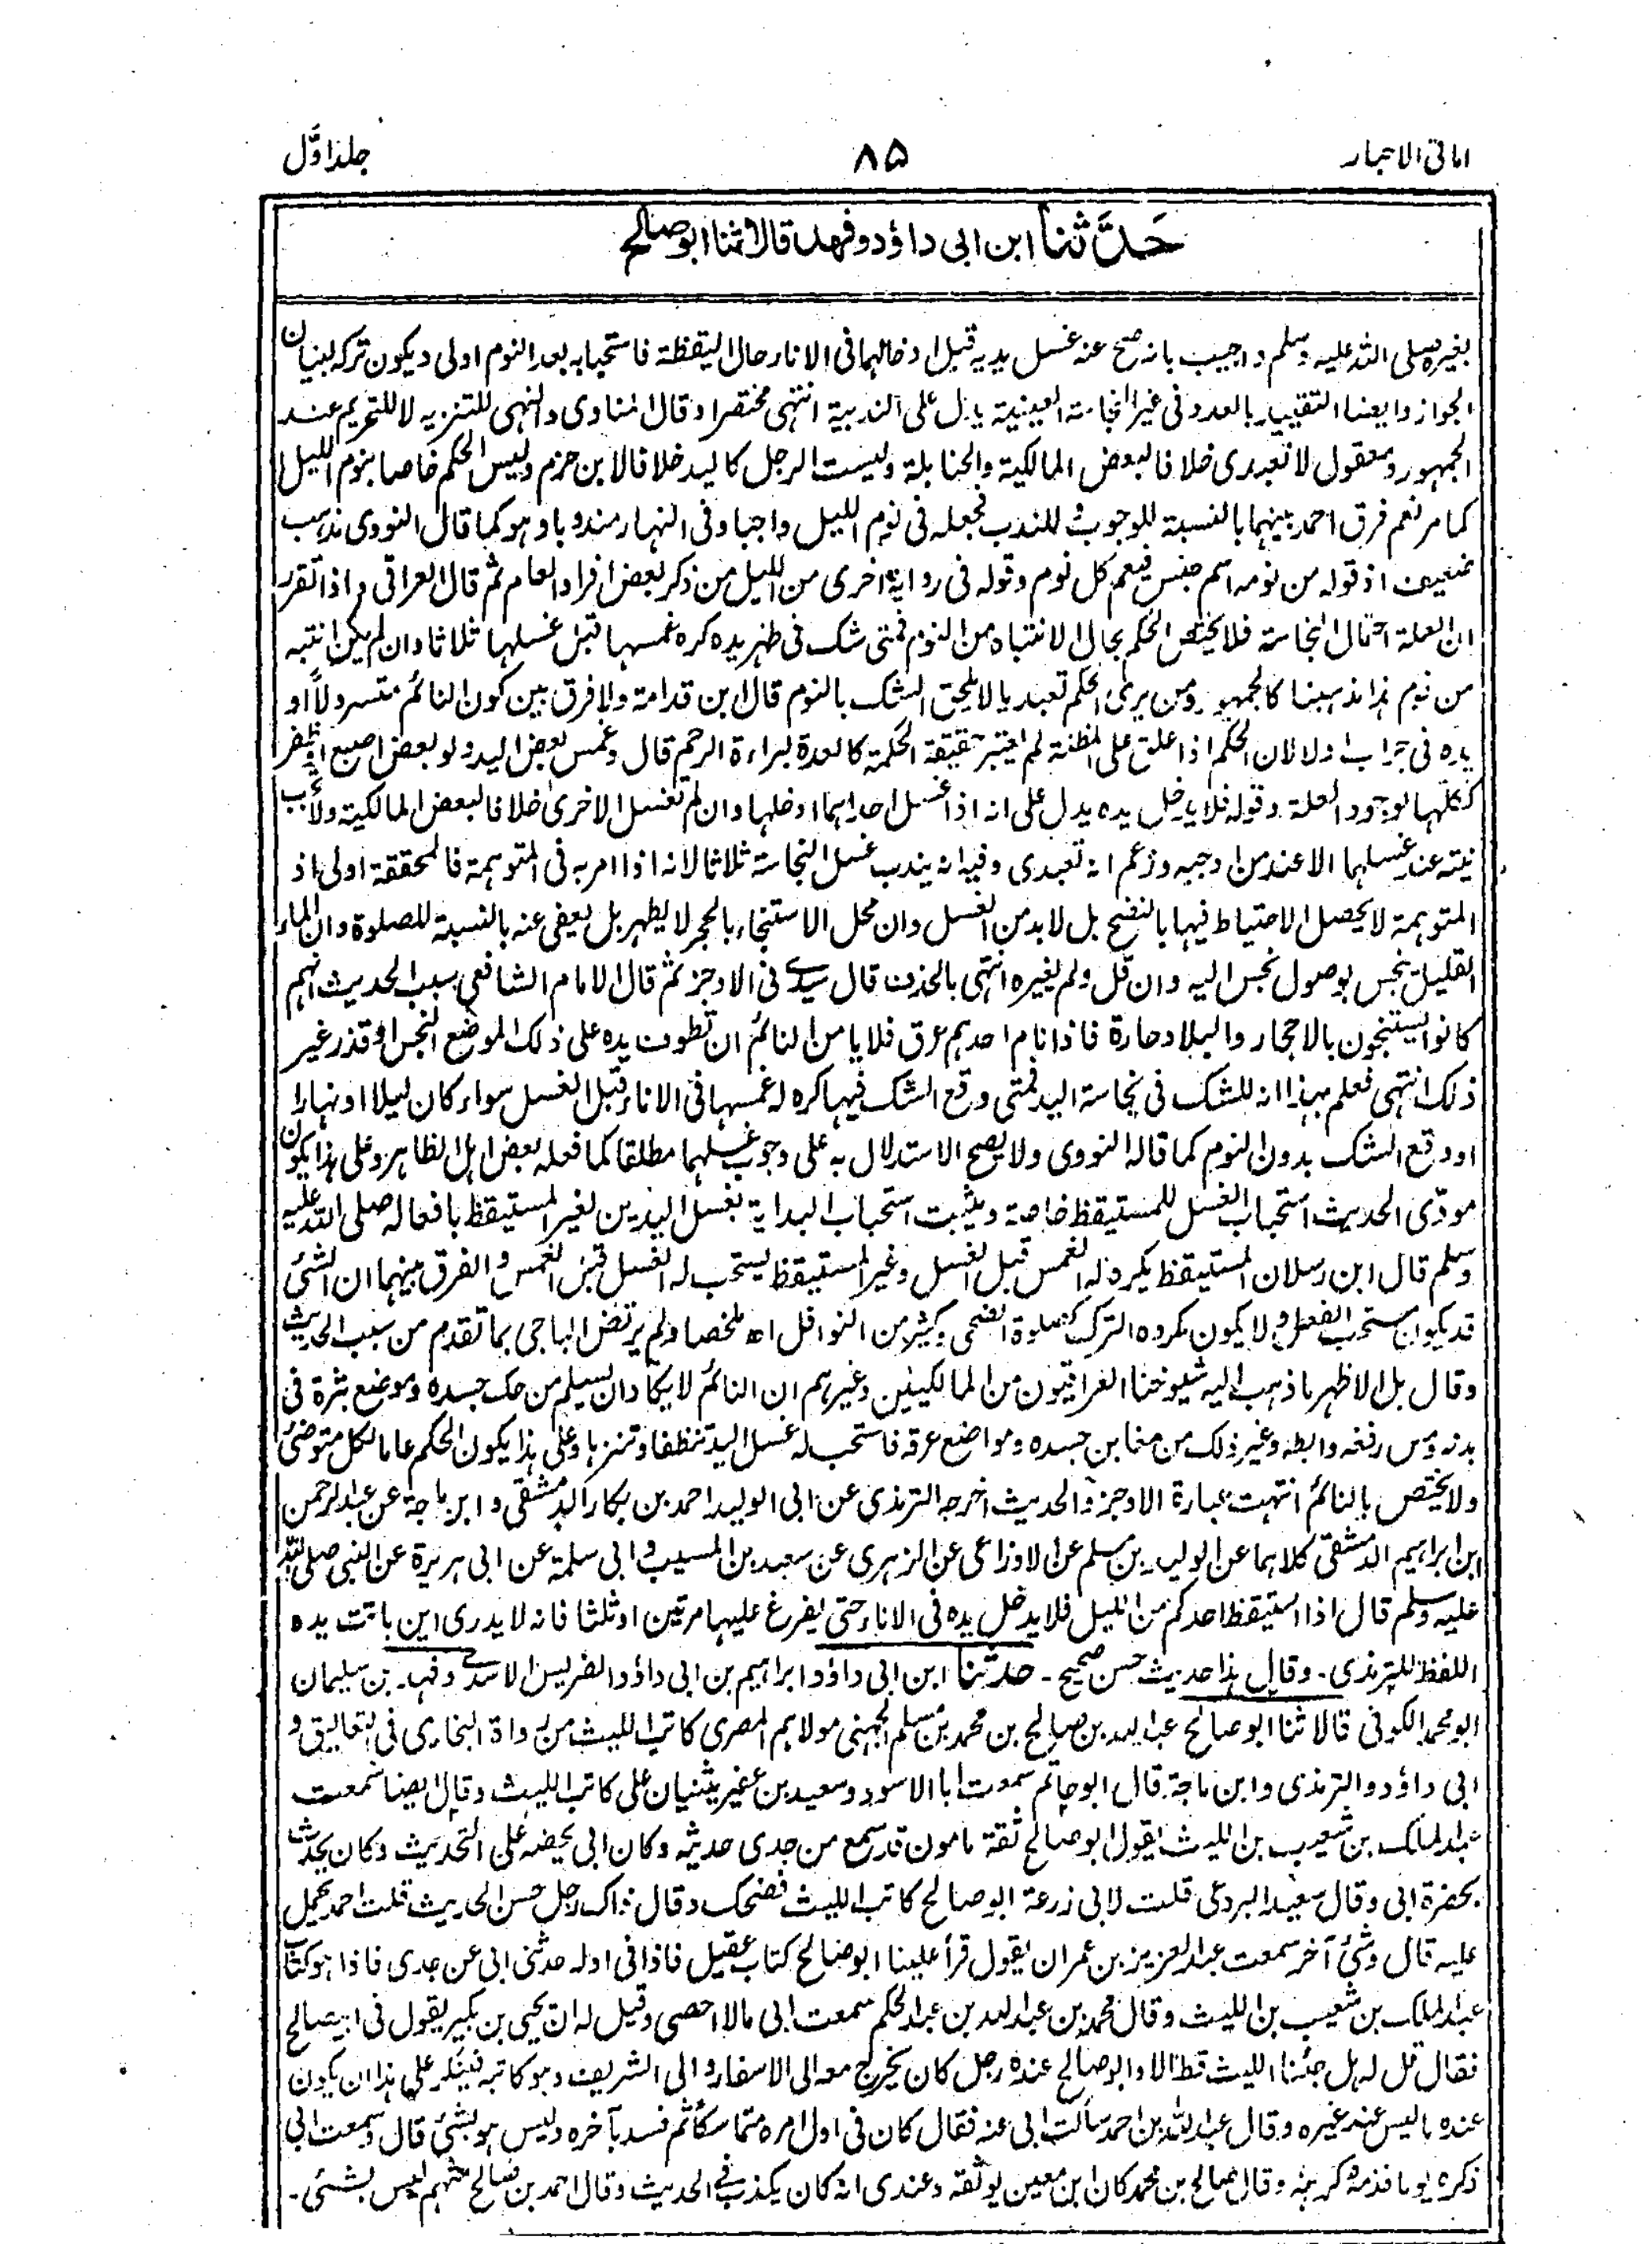 امانی الاحبار ۸۵ جلد اوّل
حَدَّثنا ابن ابی داؤد وفهد قالا ثنا ابو صالح
بغیره صلی الله علیه وسلم واجیب بانه صح عنه غسل یدیه قبل ادخالهما فی الاناء حال الیقظة فاستحبابه بعد النوم اولی ویکون ترکه لبیان
الجواز وایضا التقیید بالعدد فی غیر النجاسة العینیة یدل علی الندبیة انتهی مختصرا وقال المناوی والنهی للتنزیه لا للتحریم عند
الجمهور ومعقول لا تعبدی خلافا لبعض المالکیة والحنابلة ولیست الرجل کالید خلافا لابن حزم ولیس الحکم خاصا بنوم اللیل
کما مر نعم فرق احمد بینهما بالنسبة للوجوب والندب فجعله فی نوم اللیل واجبا وفی النهار مندوبا وهو کما قال النووی مذهب
ضعیف اذ قوله من نومه اسم جنس فیعم کل نوم وقوله فی روایة اخری من اللیل من ذکر بعض افراد العام ثم قال العراقی واذا تقرر
ان العلة احتمال النجاسة فلا یختص الحکم بحال الانتباه من النوم فمتی شک فی طهر یده کره غمسها قبل غسلها ثلاثا وان لم یکن انتبه
من نوم هذا مذهبنا کالجمهور ومن یری الحکم تعبدیا لا یلحق الشک بالنوم قال ابن قدامة ولا فرق بین کون النائم متسرولاً او
یده فی جراب اولا لان الحکم اذا علق علی المظنة لم یعتبر حقیقة الحکمة کالعدة لبراءة الرحم قال وغمس بعض الید ولو بعض اصبع او ظفر
ککلها لوجود العلة وقوله فلا یدخل یده یدل علی انه اذا غسل احداهما ادخلها وان لم تغسل الاخری خلافا لبعض المالکیة ولا یجب
نیته عند غسلهما الا عند من اوجبه وزعم انه تعبدی وفیه انه یندب غسل النجاسة ثلاثا لانه اذا امر به فی المتوهمة فالمحققة اولی اذ
المتوهمة لا یحصل الاحتیاط فیها بالنضح بل لابد من الغسل وان محل الاستنجاء بالحجر لا یطهر بل یعفی عنه بالنسبة للصلوة وان الماء
القلیل ینجس بوصول نجس الیه وان قل ولم یغیره انتهی بالحذف قال سیدی فی الاوجز ثم قال الامام الشافعی سبب الحدیث انهم
کانوا یستنجون بالاحجار والبلاد حارة فاذا نام احدهم عرق فلا یامن النائم ان تطوف یده علی ذلک الموضع النجس او قذر غیر
ذلک انتهی فعلم بهذا انه للشک فی نجاسة الید فمتی وقع الشک فیها کره له غمسها فی الاناء قبل الغسل سواء کان لیلا او نهارا
او وقع الشک بدون النوم کما قاله النووی ولا یصح الاستدلال به علی وجوب غسلهما مطلقا کما فعله بعض اهل الظاهر وعلی هذا یکون
مودّی الحدیث استحباب الغسل للمستیقظ خاصة ویثبت استحباب البدایة بغسل الیدین لغیر المستیقظ بافعاله صلی الله علیه
وسلم قال ابن رسلان المستیقظ یکره له الغمس قبل الغسل وغیر المستیقظ یستحب له الغسل قبل الغمس والفرق بینهما ان الشئ
قد یکون مستحب الفعل ولا یکون مکروه الترک کصلوة الضحی وکثیر من النوافل اه ملخصا ولم یرتض الباجی بما تقدم من سبب الحدیث
وقال بل الاظهر ما ذهب الیه شیوخنا العراقیون من المالکیین وغیرهم ان النائم لا یکاد ان یسلم من حک جسده وموضع بثرة فی
بدنه ومس رفغه وابطه وغیر ذلک من مغابن جسده ومواضع عرقه فاستحب له غسل الید تنظفا وتنزها وعلی هذا یکون الحکم عاما لکل متوضئ
ولا یختص بالنائم انتهت عبارة الاوجز والحدیث اخرجه الترمذی عن ابی الولید احمد بن بکار الدمشقی وابن ماجة عن عبد الرحمن
ابن ابراهیم الدمشقی کلاهما عن الولید بن مسلم عن الاوزاعی عن الزهری عن سعید بن المسیب وابی سلمة عن ابی هریرة عن النبی صلی الله
علیه وسلم قال اذا استیقظ احدکم من اللیل فلا یدخل یده فی الاناء حتی یفرغ علیها مرتین او ثلثا فانه لا یدری این باتت یده
اللفظ للترمذی۔ وقال هذا حدیث حسن صحیح۔ حدثنا ابن ابی داؤد ابراهیم بن ابی داؤد الضریس الاسدی وفهد بن سلیمان
ابو محمد الکوفی قالا ثنا ابو صالح عبد الله بن صالح بن محمد بن مسلم الجهنی مولاهم المصری کاتب اللیث من رواة البخاری فی التعالیق و
ابی داؤد والترمذی وابن ماجة قال ابو حاتم سمعت ابا الاسود وسعید بن عفیر یثنیان علی کاتب اللیث وقال ایضا سمعت
عبد الملک بن شعیب بن اللیث یقول ابو صالح ثقة مامون قد سمع من جدی حدیثه وکان ابی یحضه علی التحدیث وکان یحدث
بحضرة ابی وقال سعید البردعی قلت لابی زرعة ابو صالح کاتب اللیث فضحک وقال ذاک رجل حسن الحدیث قلت احمد یحمل
علیه قال وشئ آخر سمعت عبد العزیز بن عمران یقول قرأ علینا ابو صالح کتاب عقیل فاذا فی اوله حدثنی ابی عن جدی فاذا هو کتاب
عبد الملک بن شعیب بن اللیث وقال محمد بن عبد الله بن عبد الحکم سمعت ابی مالا احصی وقیل له ان یحیی بن بکیر یقول فی ابی صالح
فقال قل له هل جئنا اللیث قط الا وابو صالح عنده رجل کان یخرج معه الی الاسفار والی الشریف وهو کاتبه فینکر علی هذا ان یکون
عنده ما لیس عند غیره وقال عبد الله بن احمد سألت ابی عنه فقال کان فی اول امره متماسکاً ثم فسد بآخره ولیس هو بشئ قال وسمعت ابی
ذکره یوما فذمه وکرهه وقال صالح بن محمد کان ابن معین یوثقه وعندی انه کان یکذب فی الحدیث وقال احمد بن صالح متهم لیس بشئ۔